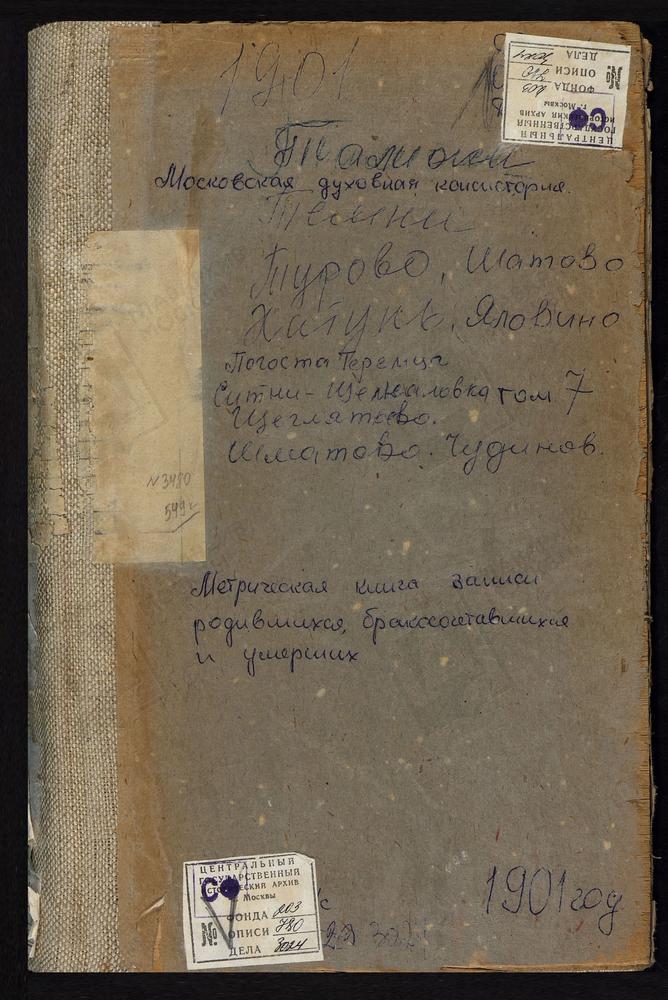 1901
ЦЕНТРАЛЬНЫЙ
ГОСУДАРСТВЕННЫЙ
ИСТОРИЧЕСКИЙ АРХИВ
г. Москвы
№
ФОНДА 203
ОПИСИ 780
ДЕЛА 3024
Талижи
Московская духовная консистория.
Темни
Турово, Шатово
Хатунь, Яловино
Погоста Теремец
Ситни-Щелкаловка том 7
Щеглятьево.
Шматово. Чудинов.
№3480
549
Метрическая книга записи
родившихся, бракосочетавшихся
и умерших
1901 год
ЦЕНТРАЛЬНЫЙ
ГОСУДАРСТВЕННЫЙ
ИСТОРИЧЕСКИЙ АРХИВ
Москвы
СО
№
ФОНДА 203
ОПИСИ 780
ДЕЛА 3024